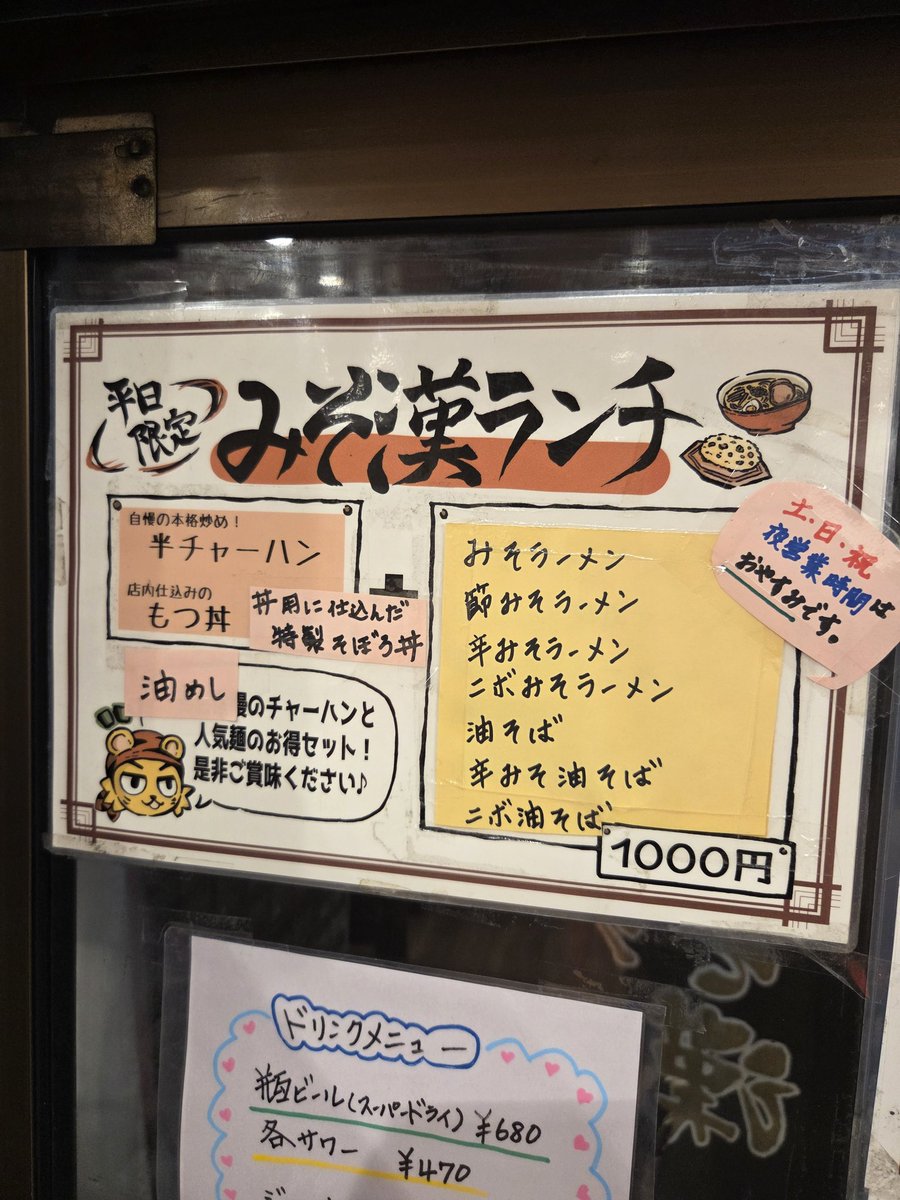 平日
限定
みそ漢ランチ
自慢の本格炒め！
半チャーハン
店内仕込みの
もつ丼
丼用に仕込んだ
特製そぼろ丼
油めし
慢のチャーハンと
人気麺のお得セット！
是非ご賞味ください♪
みそラーメン
節みそラーメン
辛みそラーメン
ニボみそラーメン
油そば
辛みそ油そば
ニボ油そば
1000円
土、日、祝
夜営業時間は
おやすみです。
ドリンクメニュー
瓶ビール(スーパードライ) ¥680
各サワー ¥470